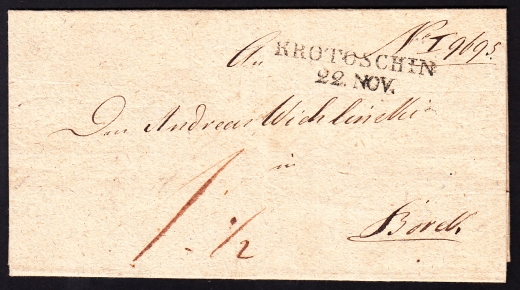 No I 9695.
An KROTOSCHIN
22. NOV.
Den Andreas Wichlinski
in
1 1/2
Borek.